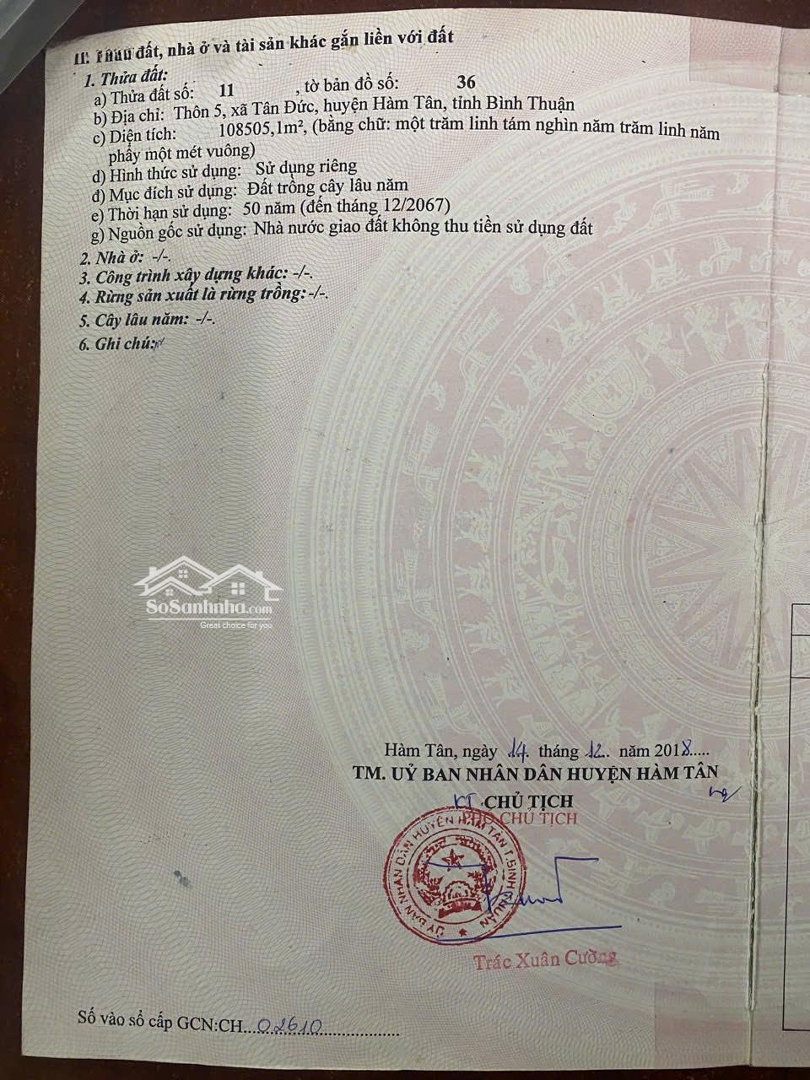 II. Thửa đất, nhà ở và tài sản khác gắn liền với đất
1. Thửa đất:
a) Thửa đất số: 11 , tờ bản đồ số: 36
b) Địa chỉ: Thôn 5, xã Tân Đức, huyện Hàm Tân, tỉnh Bình Thuận
c) Diện tích: 108505,1m², (bằng chữ: một trăm linh tám nghìn năm trăm linh năm
phẩy một mét vuông)
d) Hình thức sử dụng: Sử dụng riêng
đ) Mục đích sử dụng: Đất trồng cây lâu năm
e) Thời hạn sử dụng: 50 năm (đến tháng 12/2067)
g) Nguồn gốc sử dụng: Nhà nước giao đất không thu tiền sử dụng đất
2. Nhà ở: -/-.
3. Công trình xây dựng khác: -/-.
4. Rừng sản xuất là rừng trồng: -/-.
5. Cây lâu năm: -/-.
6. Ghi chú:
SoSanhnha.com
Great choice for you
Hàm Tân, ngày 14 tháng 12 năm 2018.....
TM. UỶ BAN NHÂN DÂN HUYỆN HÀM TÂN
KT CHỦ TỊCH
PHÓ CHỦ TỊCH
ỦY BAN NHÂN DÂN HUYỆN HÀM TÂN T. BÌNH THUẬN
Trác Xuân Cường
Số vào sổ cấp GCN:CH...02610....................